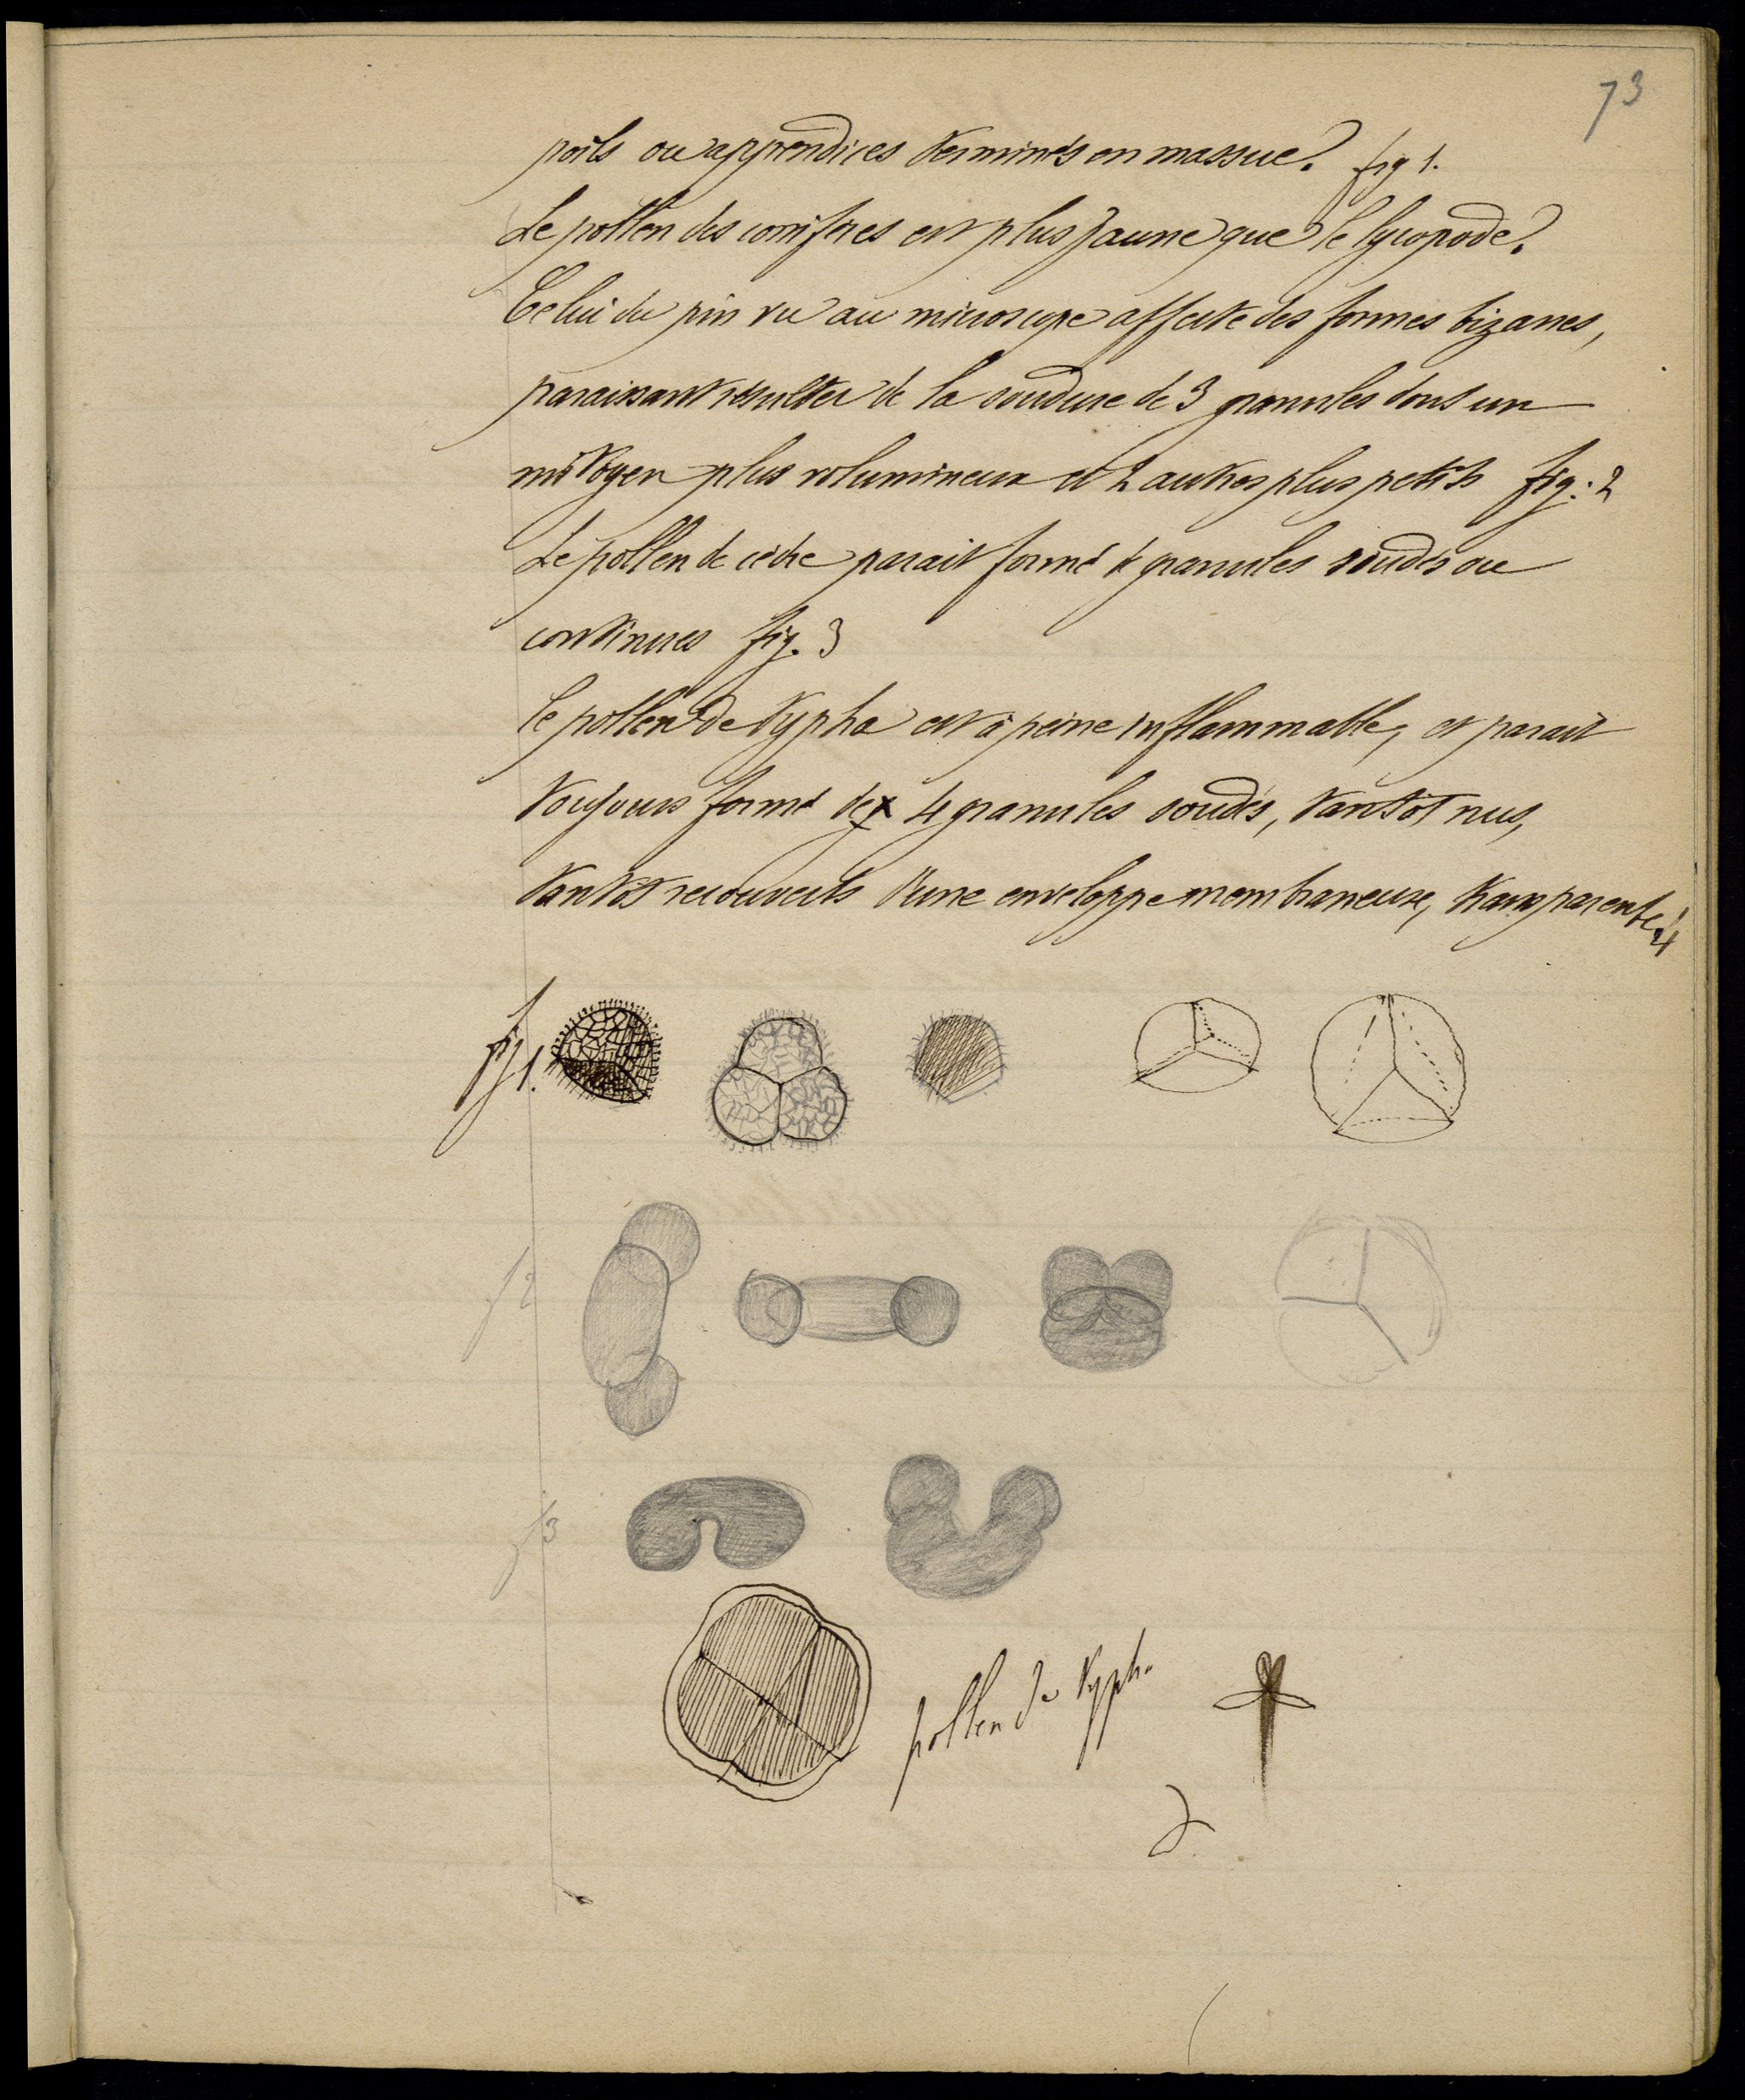 73
poils ou appendices terminés en massue. fig 1.
Le pollen des conifères est plus jaune que le lycopode.
Celui du pin vu au microscope affecte des formes bizarres,
paraissant résulter de la soudure de 3 granules dont un
mitoyen plus volumineux et 2 autres plus petits fig. 2
Le pollen de cèdre parait formé de granules soudés ou
continues fig. 3
Le pollen de typha est à peine inflammable, et parait
toujours formé de 4 granules soudés, tantôt nus,
tantôt recouverts d'une enveloppe membraneuse, transparente.
fig 1.
f 2
f 3
pollen de typha